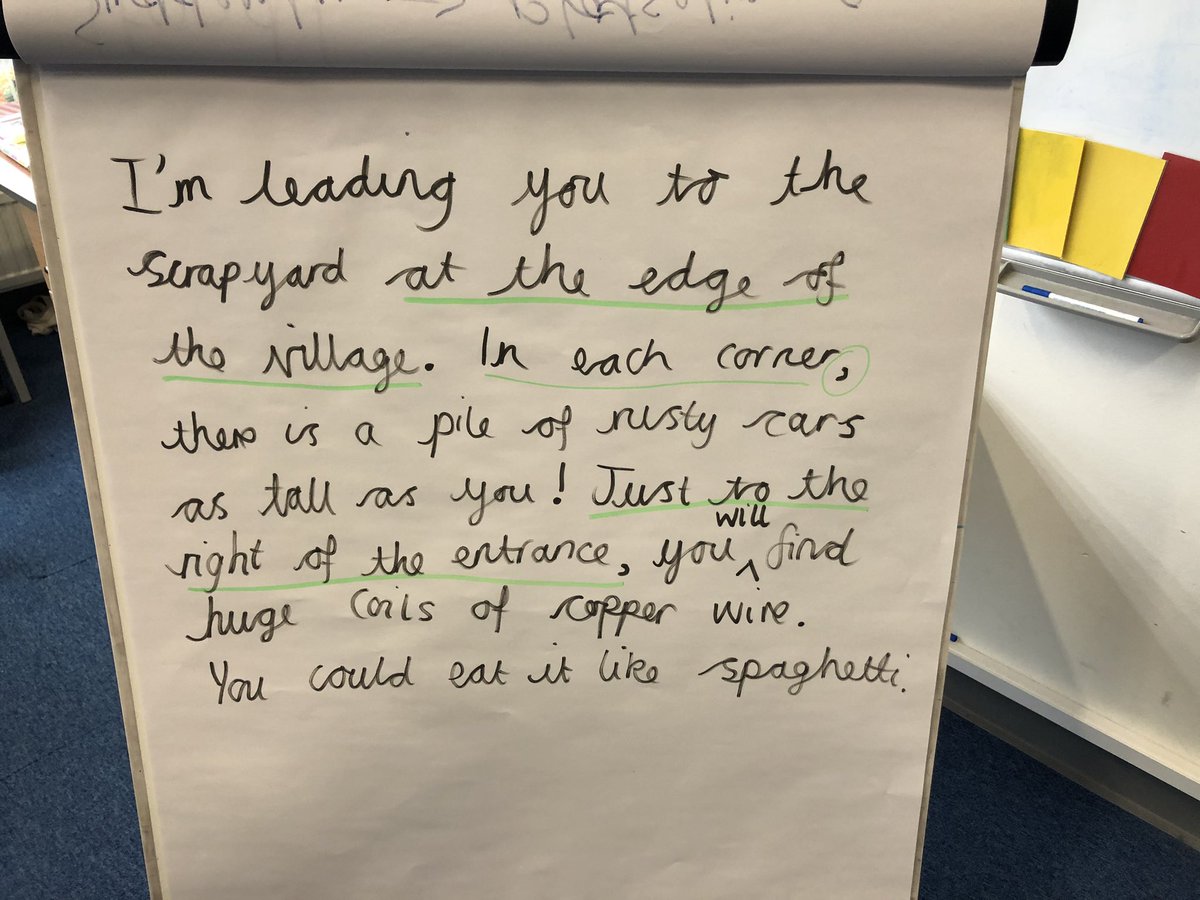 I'm leading you to the
scrapyard at the edge of
the village. In each corner,
there is a pile of rusty cars
as tall as you! Just to the
will
right of the entrance, you ^ find
huge coils of copper wire.
You could eat it like spaghetti.